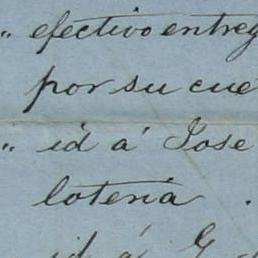 " efectivo entreg
por su cue
" id á Jose
loteria .
id á G